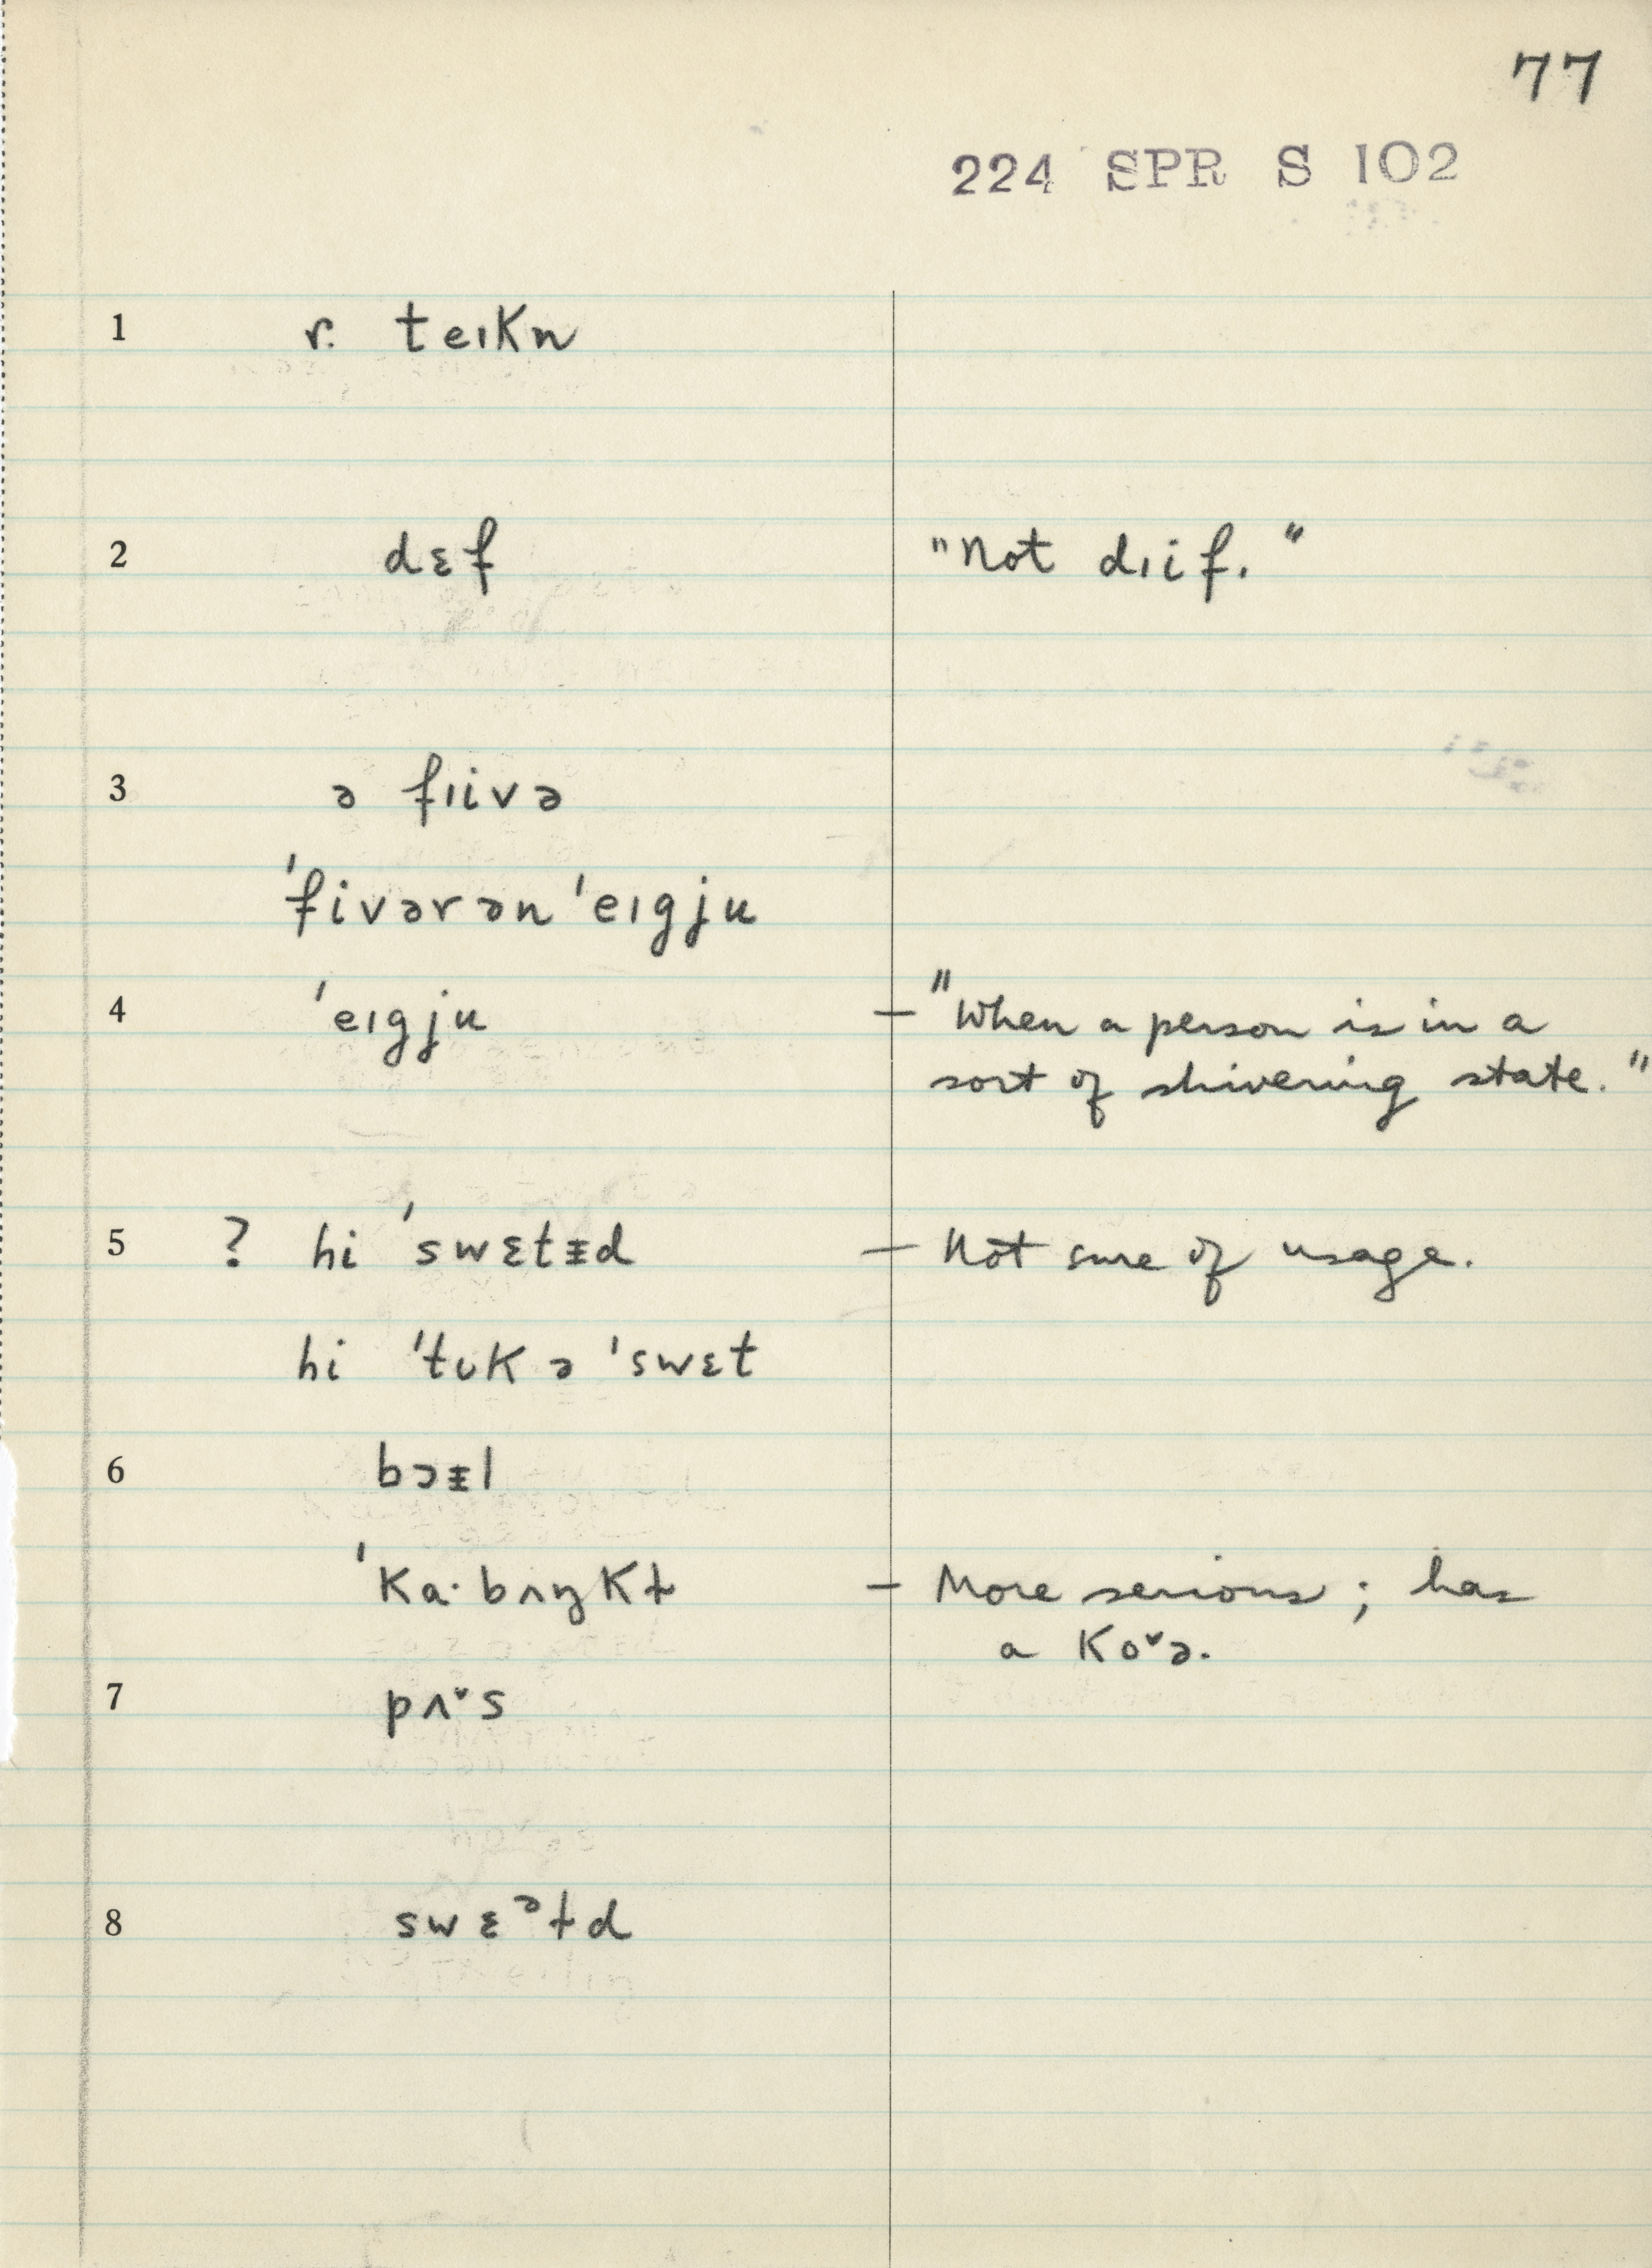 77
224 SPR S 102
1 r. teɪkn
2 dɛf "Not dɪif."
3 ə fɪivə
ˈfivərənˈeɪgju
4 ˈeɪgju — "When a person is in a
sort of shivering state."
5 ? hi ˈswɛtᵻd — Not sure of usage.
hi ˈtʊk ə ˈswɛt
6 bɔᵻl
ˈka·bʌŋkɫ — More serious; has
a ko˅ə.
7 pʌ˅s
8 swɛᵊɫd